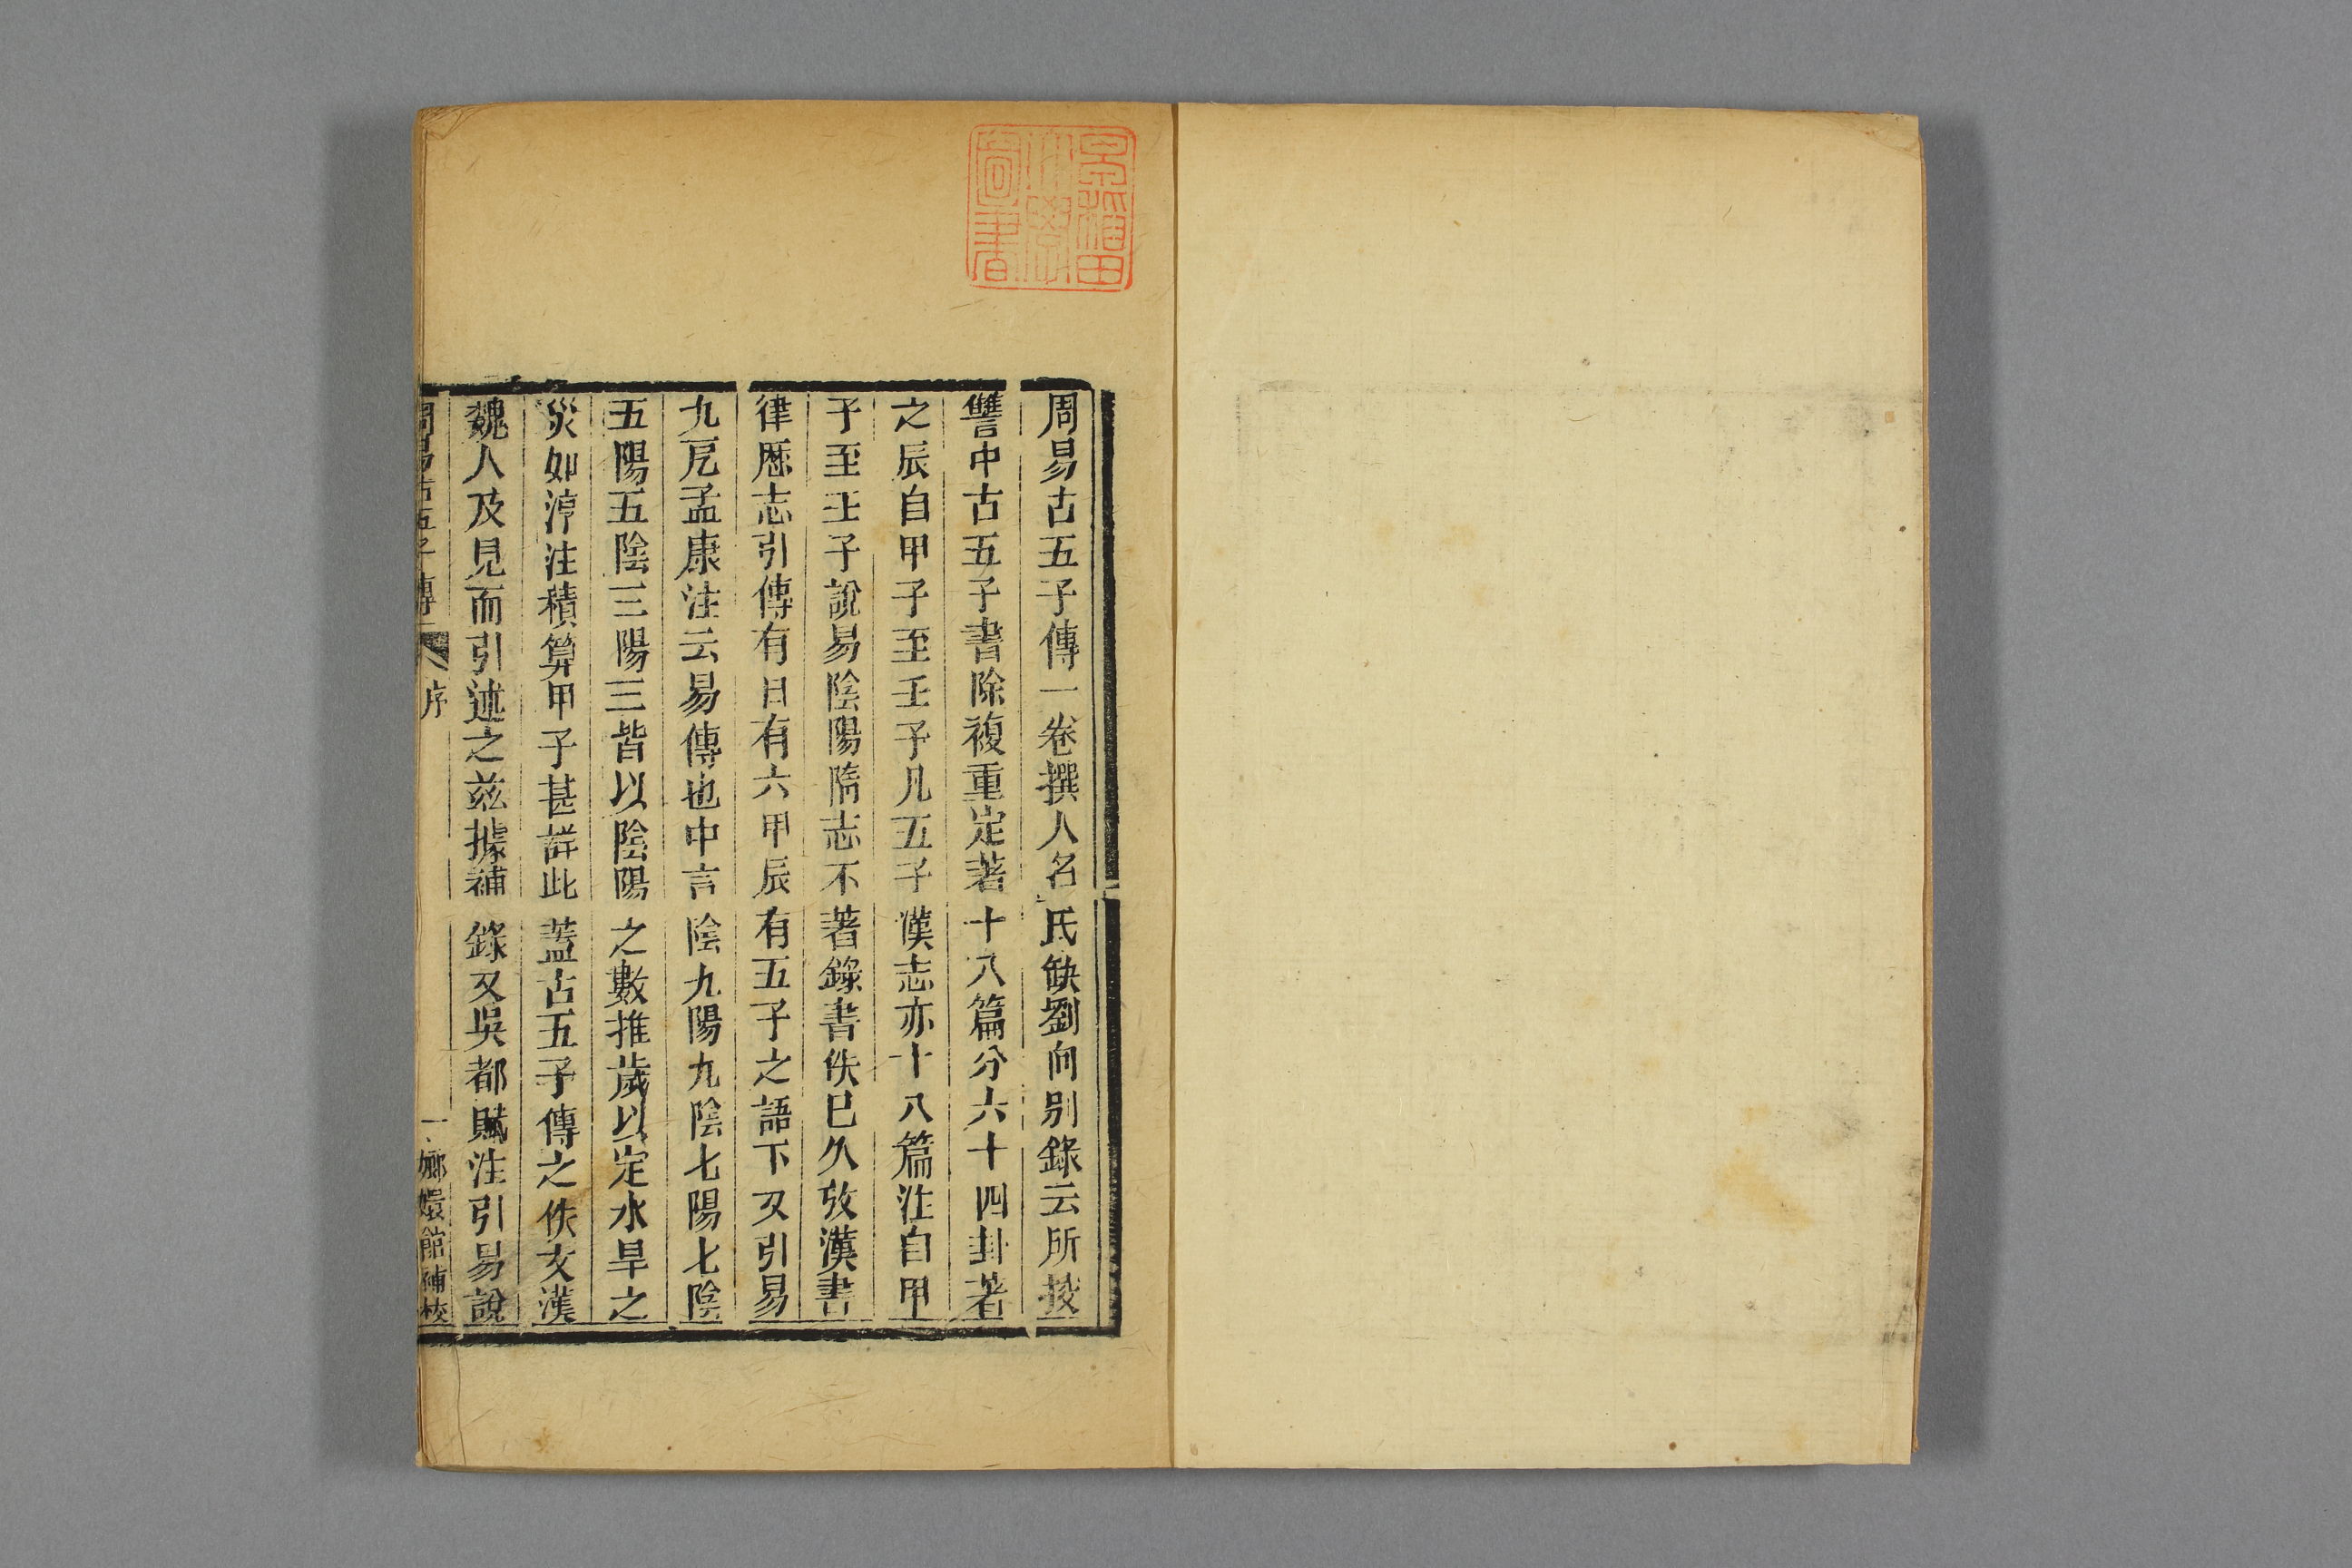 周易古五子傳一卷撰人名氏缺劉向別錄云所挍
讐中古五子書除複重定著十八篇分六十四卦著
之辰自甲子至壬子凡五子漢志亦十八篇注自甲
子至壬子說易陰陽隋志不著錄書佚已久攷漢書
律厯志引傳有曰有六甲辰有五子之語下又引易
九戹孟康注云易傳也中言陰九陽九陰七陽七陰
五陽五陰三陽三皆以陰陽之數推歲以定水旱之
災如淳注積算甲子甚詳此蓋古五子傳之佚文漢
魏人及見而引述之茲據補錄又吳都賦注引易說
周易古五子傳 序 一 嫏嬛館補校
早稲田大學圖書